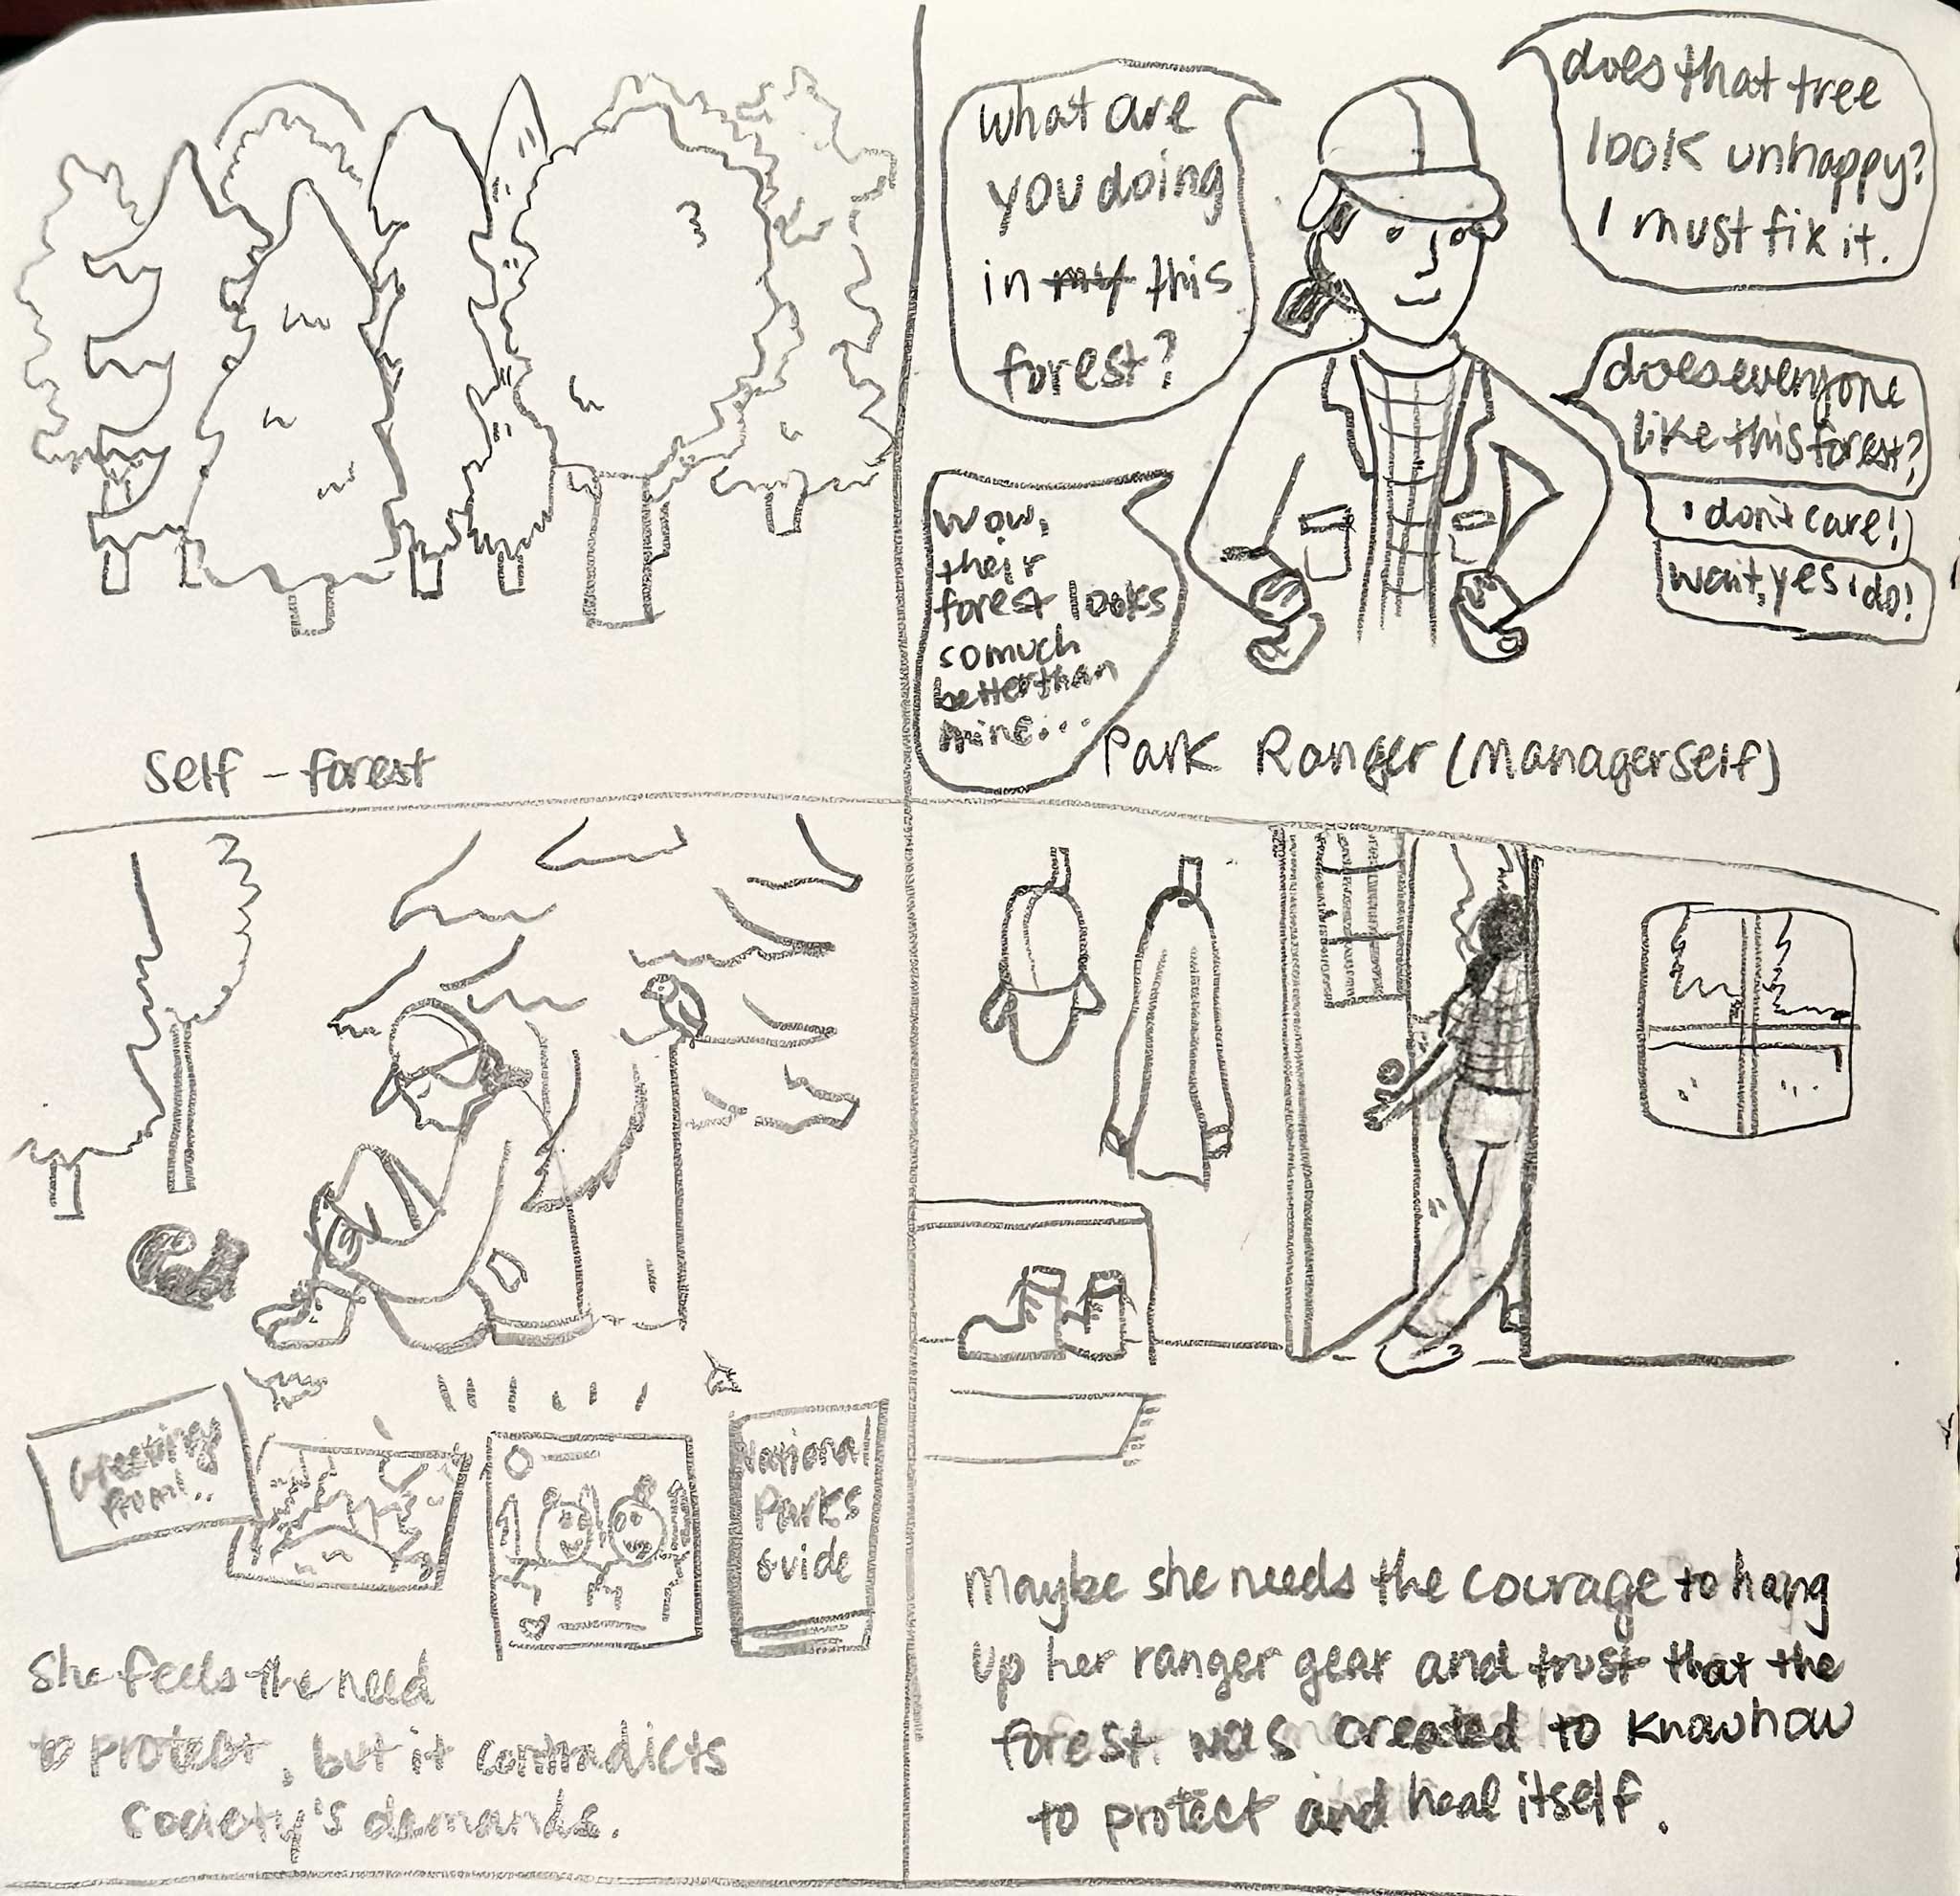 Self - forest
what are
you doing
in my this
forest?
does that tree
look unhappy?
I must fix it.
does everyone
like this forest?
i don't care!
wait, yes i do!
wow,
their
forest looks
so much
better than
mine...
Park Ranger (Manager self)
Greetings
from...
National
Parks
Guide
She feels the need
to protect, but it contradicts
society's demands.
Maybe she needs the courage to hang
up her ranger gear and trust that the
forest was created to know how
to protect and heal itself.